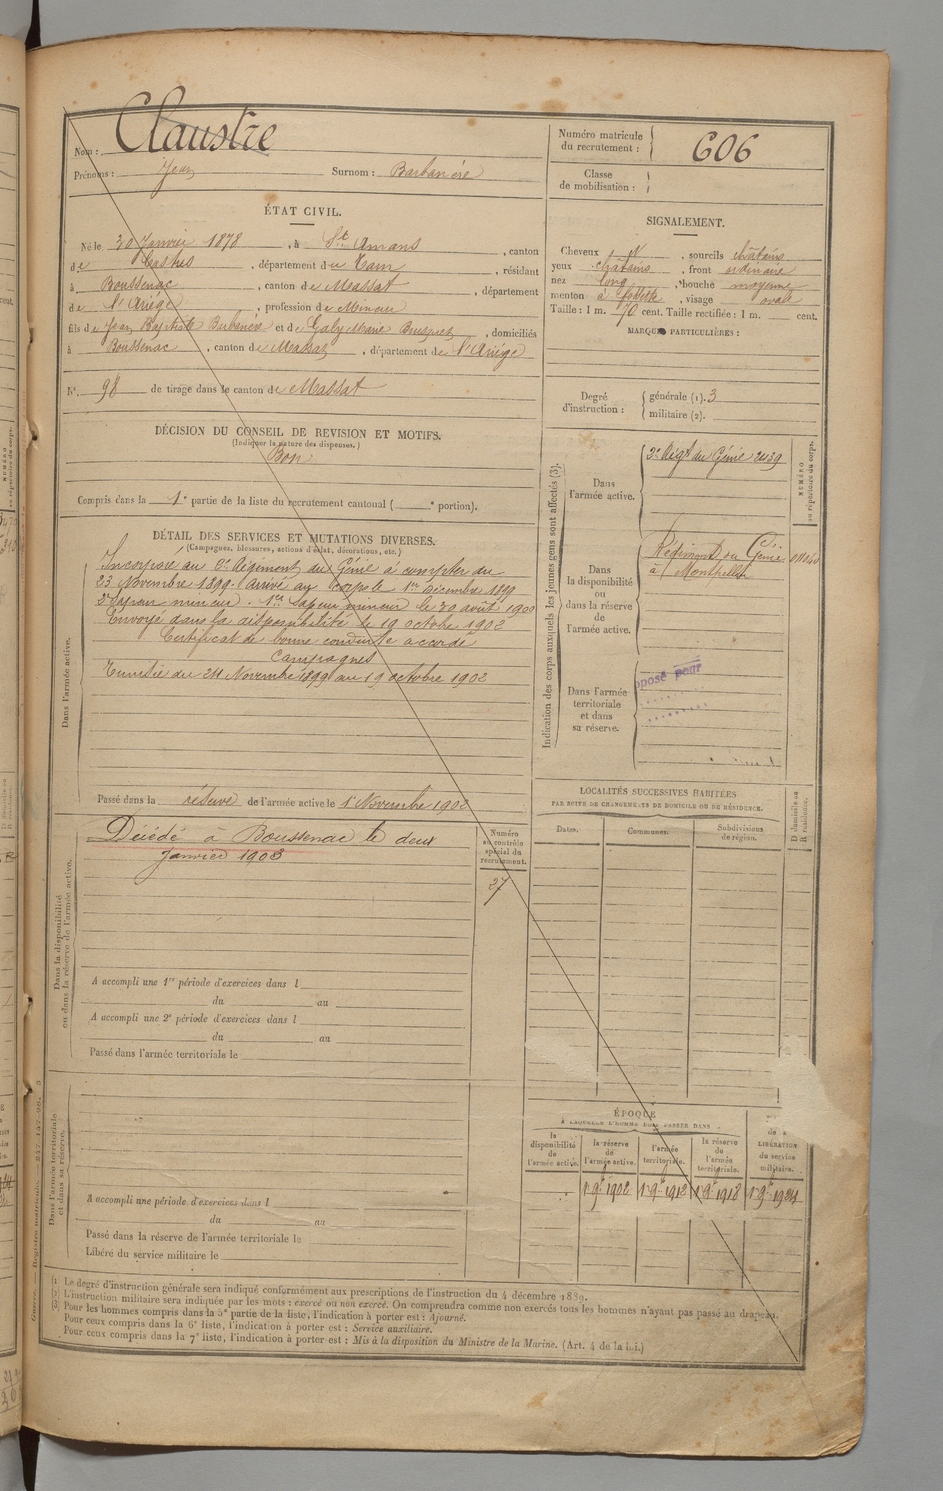 Nom : Claustre
Prénoms : Jean Surnom : Barbanère
Numéro matricule du recrutement : 606
Classe de mobilisation :
ÉTAT CIVIL.
Né le 30 Janvier 1878, à St Amans, canton
de Castres, département du Tarn, résidant
à Boussenac, canton de Massat, département
de l'Ariége, profession de Mineur
fils de Jean Baptiste et de Galy Marie, domiciliés
à Boussenac, canton de Massat, département de l'Ariége
N° 98 de tirage dans le canton de Massat
SIGNALEMENT.
Cheveux, sourcils châtains
yeux châtains, front ordinaire
nez long, bouche moyenne
menton à fossette, visage ovale
Taille : 1 m. 70 cent. Taille rectifiée : 1 m. cent.
MARQUES PARTICULIÈRES :
Degré d'instruction : générale (1). 3
militaire (2).
DÉCISION DU CONSEIL DE REVISION ET MOTIFS.
(Indiquer la nature des dispenses.)
Bon
Compris dans la 1e partie de la liste du recrutement cantonal ( e portion).
DÉTAIL DES SERVICES ET MUTATIONS DIVERSES.
(Campagnes, blessures, actions d'éclat, décorations, etc.)
Dans l'armée active.
Incorporé au 2e Régiment du Génie à compter du
23 Novembre 1899. arrivé au corps le 1er Décembre 1899
2e Sapeur mineur. 1er Sapeur mineur le 30 août 1900
Envoyé dans la disponibilité le 19 octobre 1902
Certificat de bonne conduite accordé
Campagnes
Tunisie du 24 Novembre 1899 au 19 octobre 1902
Passé dans la réserve de l'armée active le 1 Novembre 1902
Indication des corps auxquels les jeunes gens sont affectés (3).
NUMÉRO au répertoire du corps.
Dans l'armée active.
2e Régt du Génie 2439
Dans la disponibilité ou dans la réserve de l'armée active.
du Génie
à Montpellier
Dans l'armée territoriale et dans sa réserve.
posé pour
LOCALITÉS SUCCESSIVES HABITÉES
PAR SUITE DE CHANGEMENTS DE DOMICILE OU DE RÉSIDENCE.
Dates. Communes. Subdivisions de région. D domicile ou R résidence.
Dans la disponibilité ou dans la réserve de l'armée active.
Décédé à Boussenac le deux
Janvier 1903
Numéro au contrôle spécial du recrutement.
27
A accompli une 1re période d'exercices dans l
du au
A accompli une 2e période d'exercices dans l
du au
Passé dans l'armée territoriale le
Dans l'armée territoriale et dans sa réserve.
A accompli une période d'exercices dans l
du au
Passé dans la réserve de l'armée territoriale le
Libéré du service militaire le
ÉPOQUE
À LAQUELLE L'HOMME DOIT PASSER DANS
la disponibilité de l'armée active. la réserve de l'armée active. l'armée territoriale. la réserve de l'armée territoriale. de la LIBÉRATION du service militaire.
1 9e 1902 1 9e 1912 1 9e 1918 1 9e 1924
(1) Le degré d'instruction générale sera indiqué conformément aux prescriptions de l'instruction du 4 décembre 1889.
(2) L'instruction militaire sera indiquée par les mots : exercé ou non exercé. On comprendra comme non exercés tous les hommes n'ayant pas passé au drapeau.
(3) Pour les hommes compris dans la 5e partie de la liste, l'indication à porter est : Ajourné.
Pour ceux compris dans la 6e liste, l'indication à porter est : Service auxiliaire.
Pour ceux compris dans la 7e liste, l'indication à porter est : Mis à la disposition du Ministre de la Marine. (Art. 4 de la loi.)